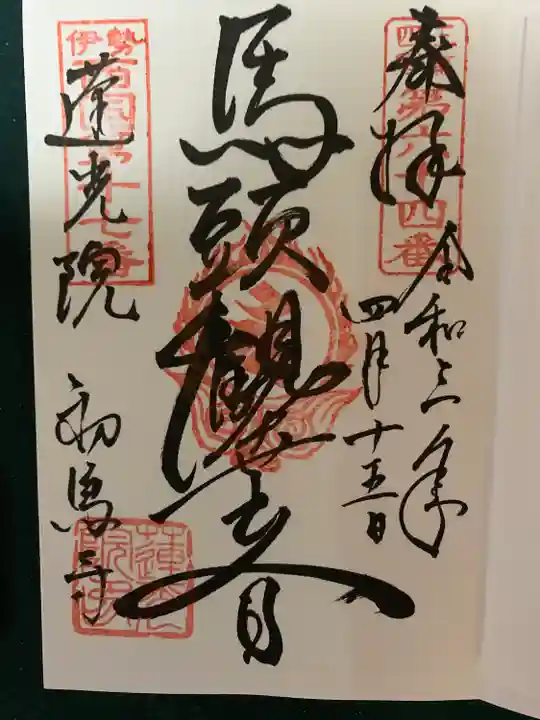 奉拝
令和三年
四月十五日
馬頭観世音
蓮光院
初馬寺
伊勢
西国第十七番
四国第六十四番